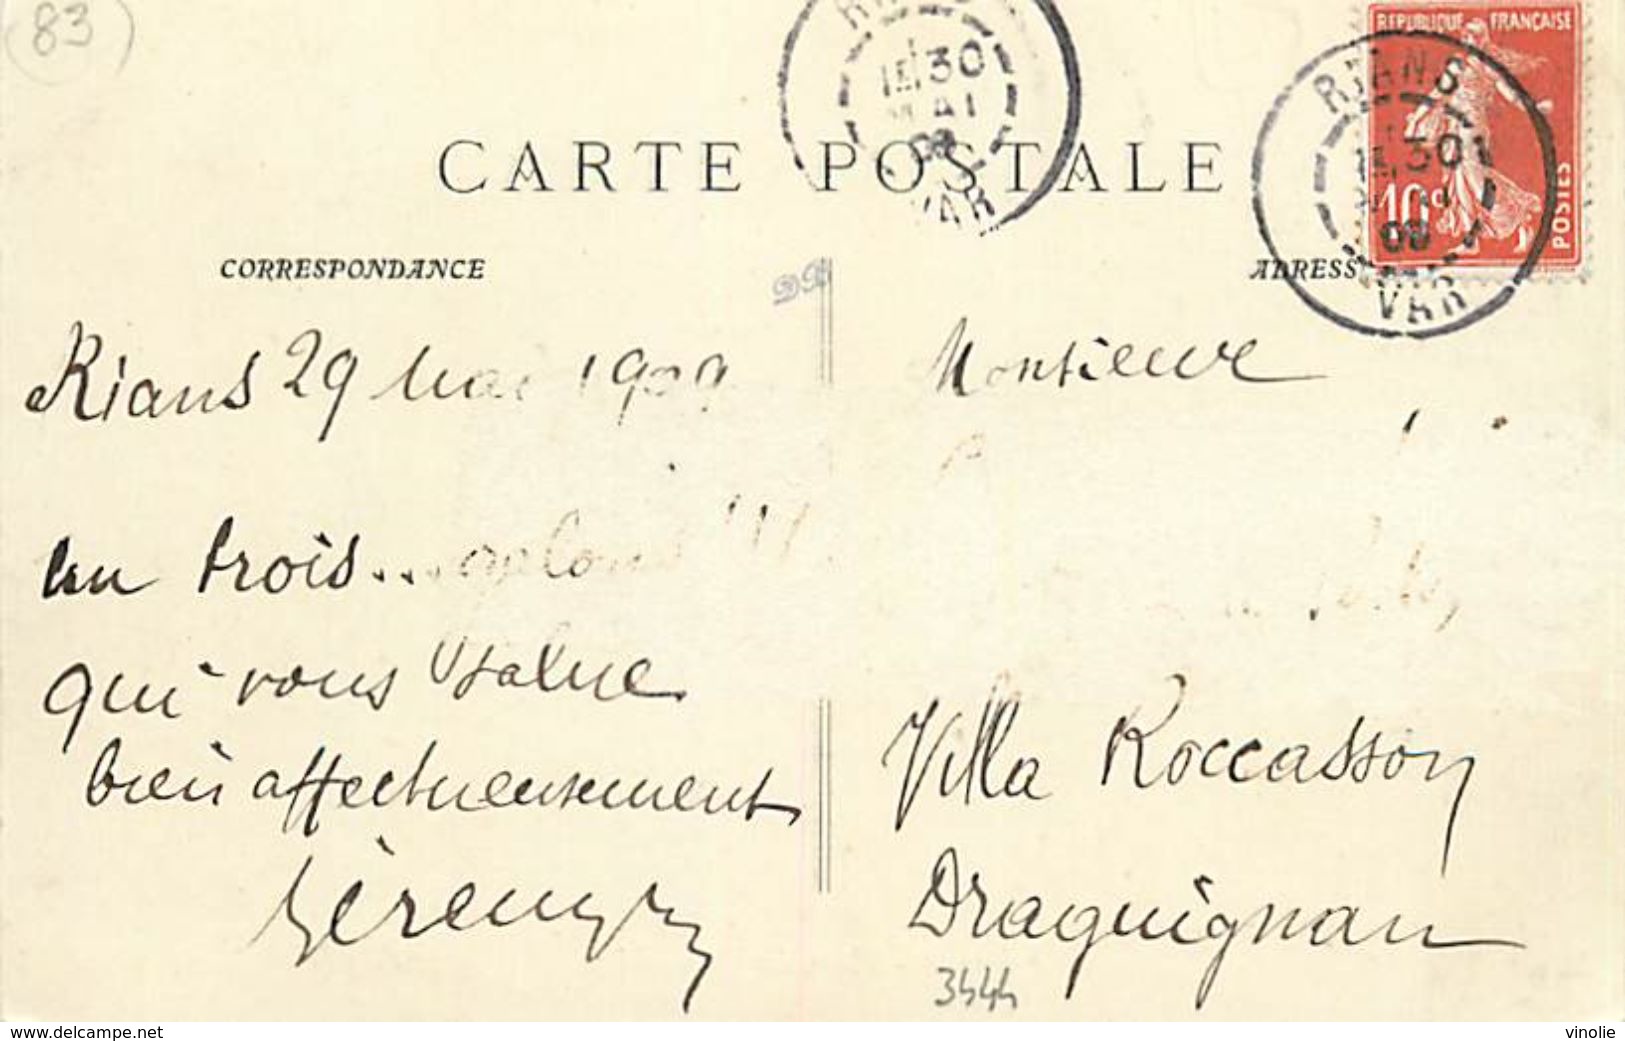 83
RIANS
1E 30
MAI
09
VAR
REPUBLIQUE FRANÇAISE
10c
POSTES
RIANS
1E 30
09
VAR
CARTE POSTALE
CORRESPONDANCE
ADRESSE
Rians 29 Mai 1909
un trois...
qui vous salue
bien affectueusement
Monsieur
Villa Roccasson
Draguignan
3444
www.delcampe.net
vinolie